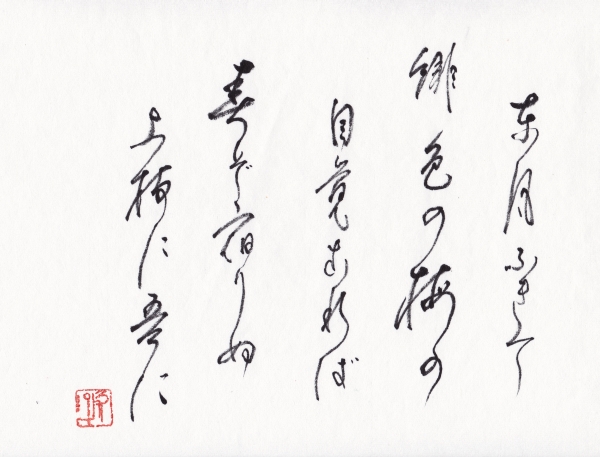 東風ふきて
緋色の梅の
目覚むれば
春ぞ宿りぬ
に吾に